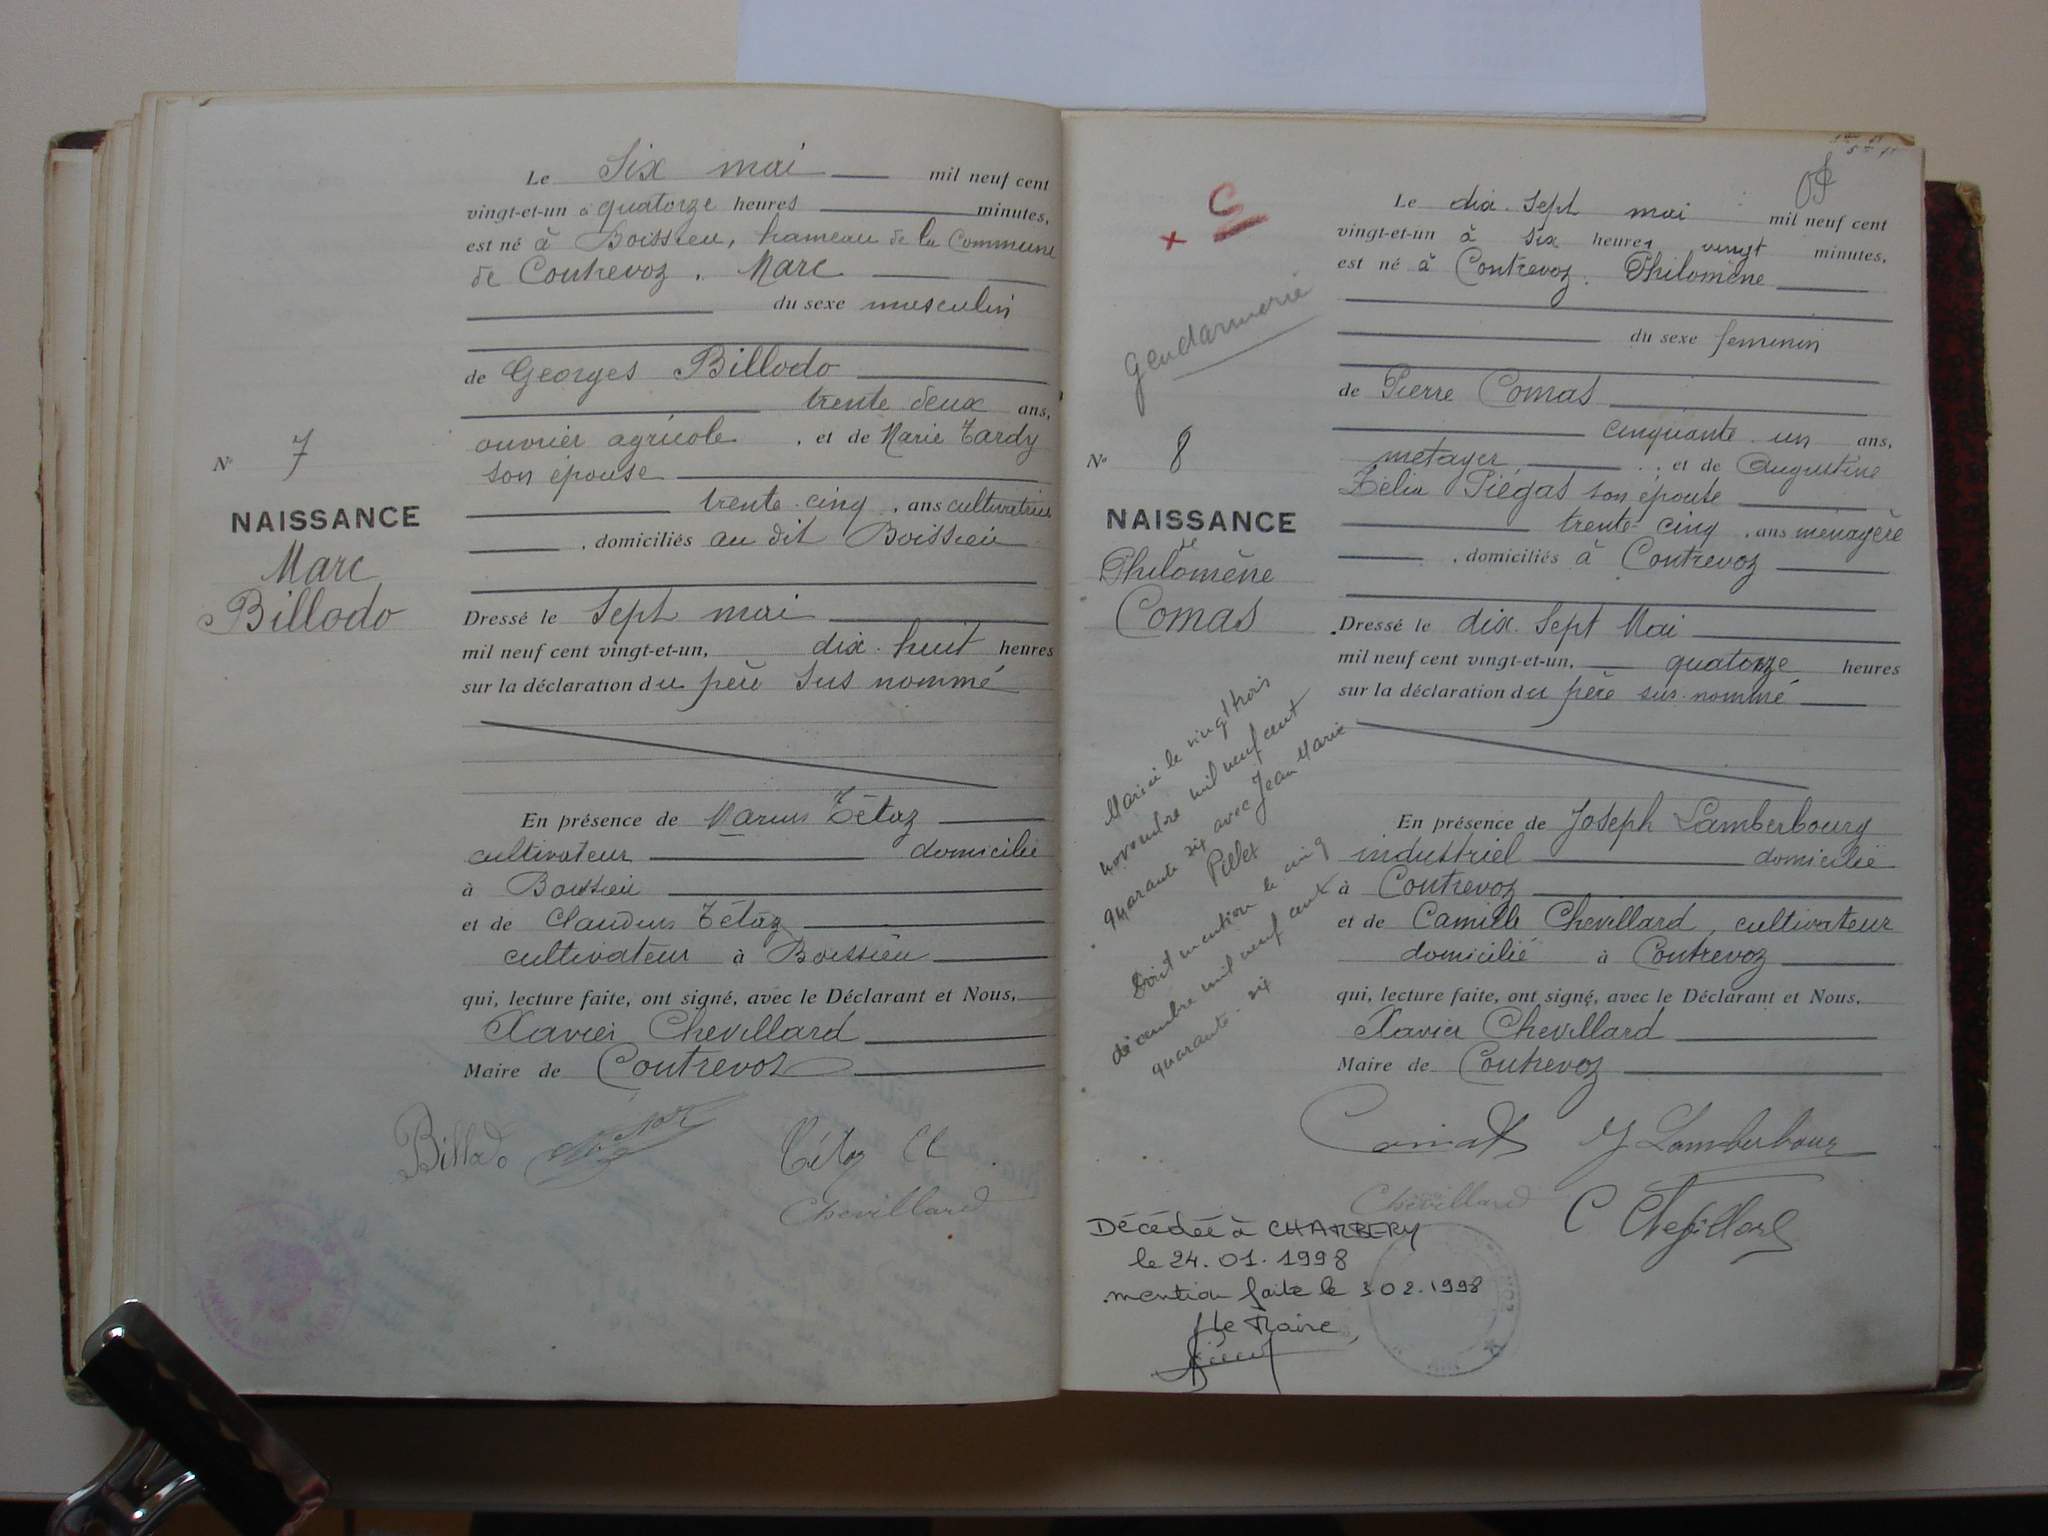 Le Six mai mil neuf cent
vingt-et-un à quatorze heures minutes,
est né à Boissieu, hameau de la Commune
de Contrevoz, Marc
du sexe masculin
de Georges Billodo
trente deux ans,
ouvrier agricole, et de Marie Tardy
son épouse
trente-cinq, ans cultivatrice
, domiciliés au dit Boissieu
Nº 7
NAISSANCE
Marc
Billodo
Dressé le Sept mai
mil neuf cent vingt-et-un, dix-huit heures
sur la déclaration du père sus nommé
En présence de Marius Tétaz
cultivateur domicilié
à Boissieu
et de Claudius Tétaz
cultivateur à Boissieu
qui, lecture faite, ont signé, avec le Déclarant et Nous,
Xavier Chevillard
Maire de Contrevoz
Billodo Tétaz Cl
Chevillard
C
x
Gendarmerie
Le dix-sept mai mil neuf cent
vingt-et-un à six heures vingt minutes,
est né à Contrevoz, Philomène
du sexe feminin
de Pierre Comas
cinquante-un ans,
metayer, et de Augustine
Zélia Piégas son épouse
trente-cinq, ans ménagère
, domiciliés à Contrevoz
Nº 8
NAISSANCE
de
Philomène
Comas
Dressé le dix-sept Mai
mil neuf cent vingt-et-un, quatorze heures
sur la déclaration du père sus-nommé
Mariée le vingt trois
novembre mil neuf cent
quarante six avec Jean Marie
Pillet
Dont mention le cinq
décembre mil neuf cent
quarante-six
En présence de Joseph Lamberbourg
industriel domicilié
à Contrevoz
et de Camille Chevillard, cultivateur
domicilié à Contrevoz
qui, lecture faite, ont signé, avec le Déclarant et Nous,
Xavier Chevillard
Maire de Contrevoz
Comas J Lamberbourg
Chevillard C Chevillard
Décédée à CHAMBERY
le 24.01.1998
mention faite le 3 02.1998
Le Maire